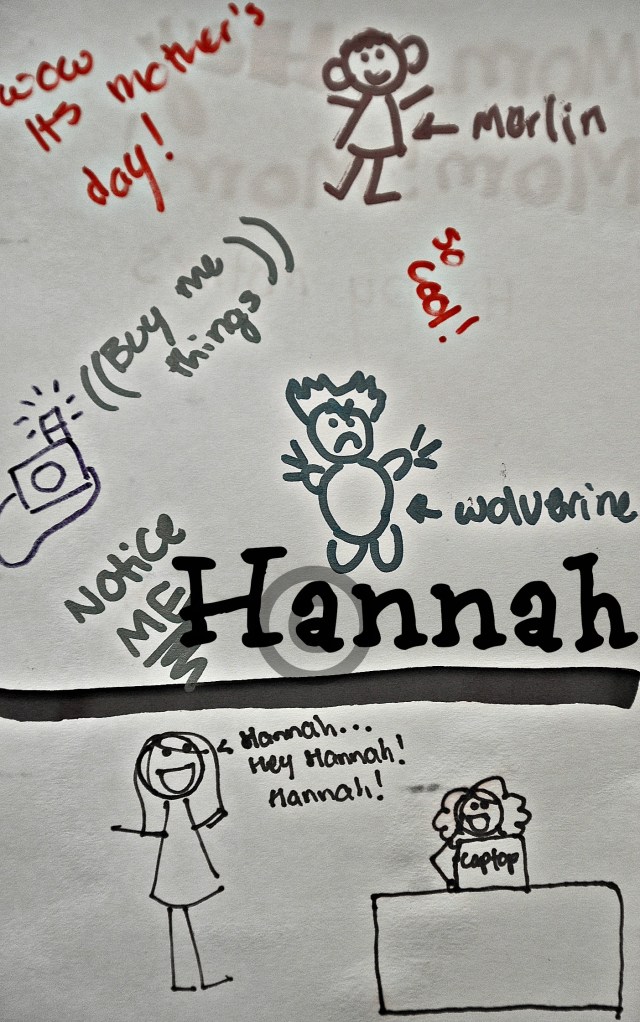 wow
Its mother's
day!
Merlin
((Buy me
things))
so
cool!
wolverine
Notice
ME
Hannah
Hannah...
Hey Hannah!
Hannah!
Laptop